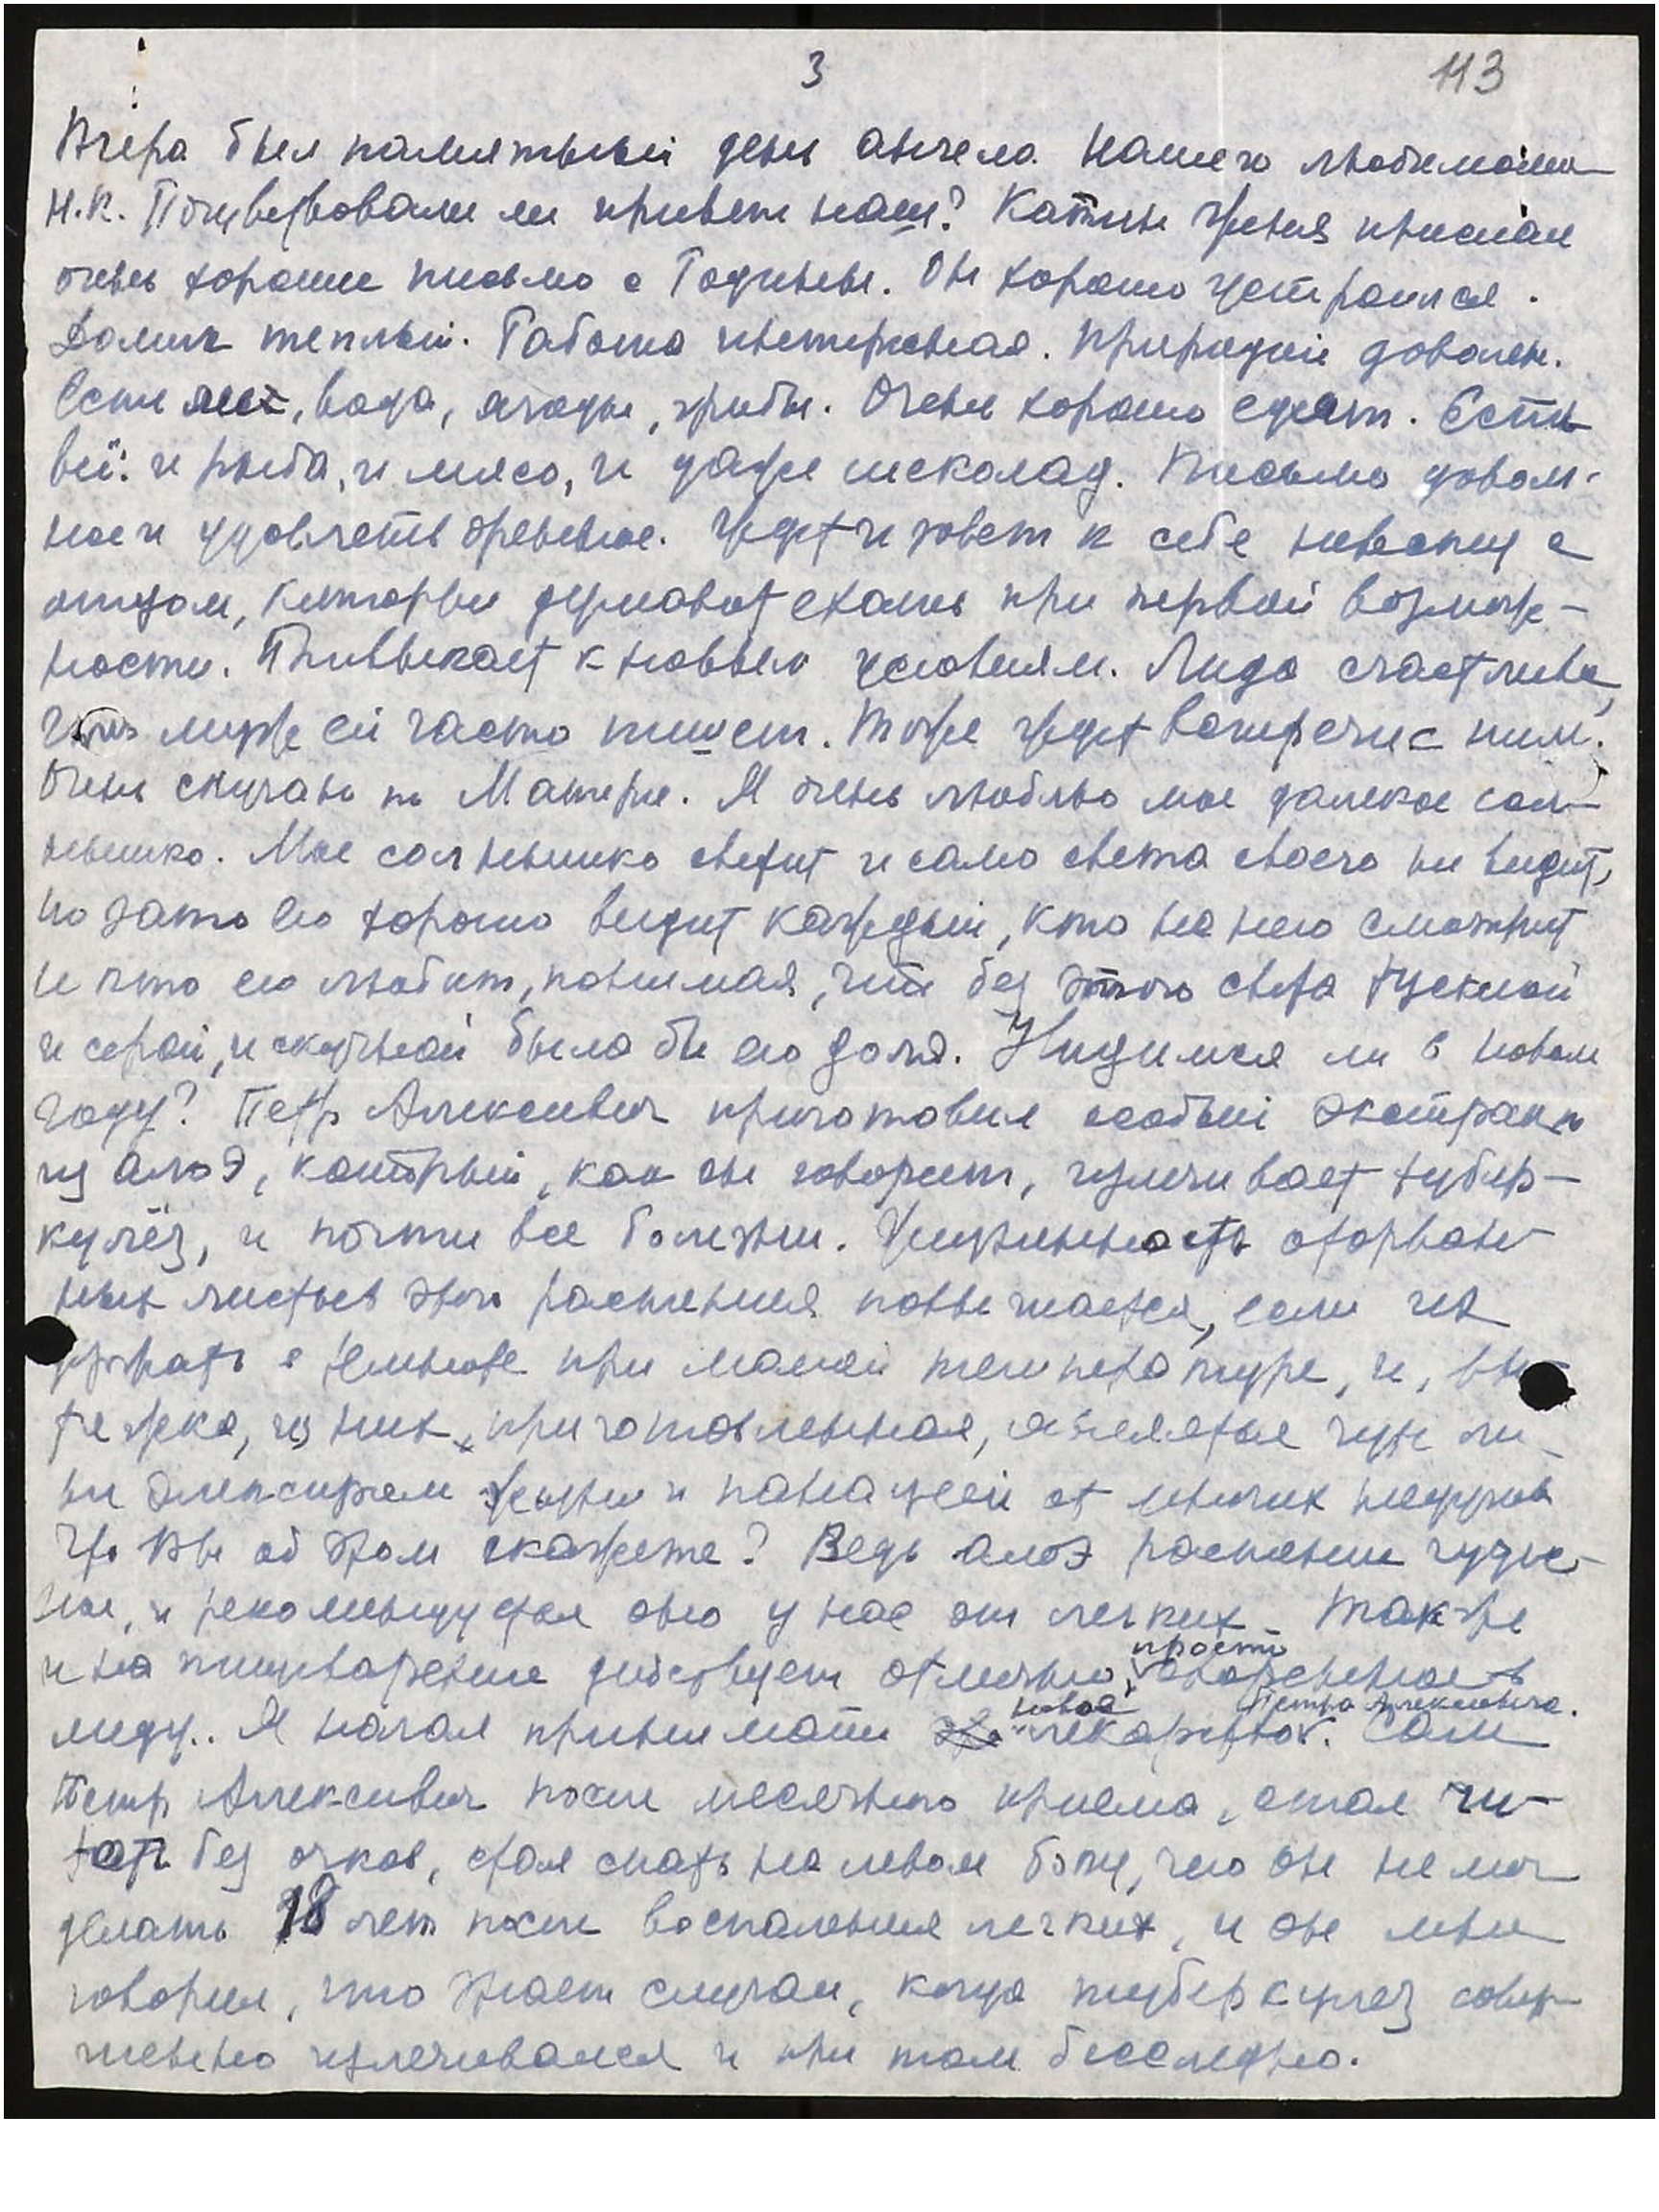 3
113
Вчера был памятный день ангела нашего любимого
Н.К. Почувствовали ли привет наш? Катин Женя прислал
очень хорошее письмо с Родины. Он хорошо устроился.
Домик теплый. Работа интересная. Природой доволен.
Есть лес, вода, ягоды, грибы. Очень хорошо едят. Есть
всё: и рыба, и мясо, и даже шоколад. Письмо доволь-
ное и удовлетворенное. Ждет и зовет к себе невесту с
отцом, которые думают ехать при первой возмож-
ности. Привыкает к новым условиям. Лида счастлива,
что муж ей часто пишет. Тоже ждет встречи с ним.
Очень скучаю по Матери. Я очень люблю мое далекое сол-
нышко. Мое солнышко светит и само света своего не видит,
но зато его хорошо видит каждый, кто на него смотрит
и кто его любит, понимая, что без этого света тусклой
и серой, и скучной была бы его доля. Увидимся ли в новом
году? Петр Алексеевич приготовил особый экстракт
из алоэ, который, как он говорит, излечивает тубер-
кулёз, и почти все болезни. Жизненность оторван-
ных листьев этого растения повышается, если их
держать в темноте при малой температуре, и, вы-
тяжка, из них приготовленная, является чуть ли
не эликсиром жизни и панацеей от многих недугов
Что Вы об этом скажете? Ведь алоэ растение чудес-
ное, и рекомендуется оно у нас от легких. Также
и на пищеварение действует отлично, просто сваренное в
меду. Я начал принимать "новое" лекарство Петра Алексеевича. Сам
Петр Алексеевич после месячного приема, стал чи-
тать без очков, стал спать на левом боку, чего он не мог
делать 18 лет после воспаления легких, и он мне
говорил, что знает случаи, когда туберкулез совер-
шенно излечивался и при том бесследно.